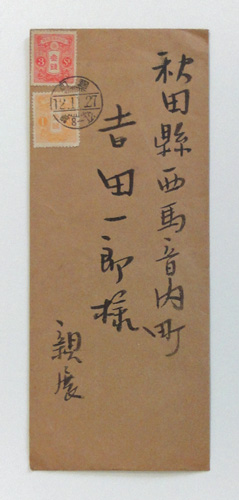 秋田縣西馬音内町
吉田一郎様
親展
12.1.27